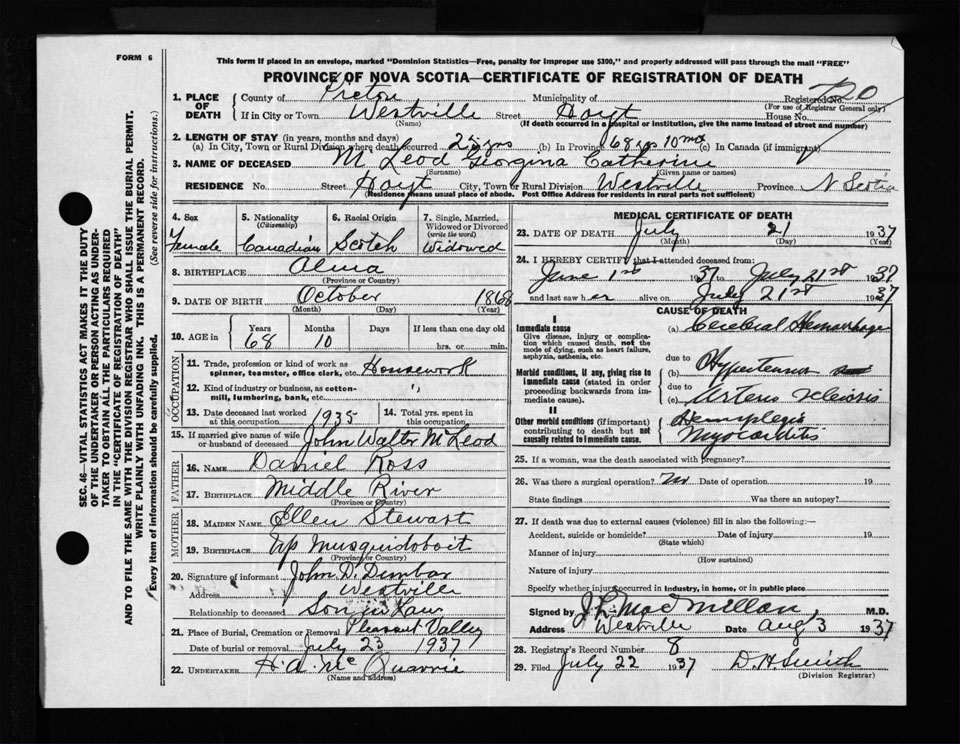 FORM 6
This form if placed in an envelope, marked "Dominion Statistics—Free, penalty for improper use $300," and properly addressed will pass through the mail "FREE"
PROVINCE OF NOVA SCOTIA—CERTIFICATE OF REGISTRATION OF DEATH
1. PLACE OF DEATH County of Pictou Municipality of Registered No. 720
(For use of Registrar General only)
If in City or Town Westville Street Hoyt House No.
(Name) (If death occurred in a hospital or institution, give the name instead of street and number)
2. LENGTH OF STAY (in years, months and days)
(a) In City, Town or Rural Division where death occurred 25 yrs (b) In Province 68 yrs 10 mos (c) In Canada (if immigrant)
3. NAME OF DECEASED McLeod Georgina Catherine
(Surname) (Given name or names)
RESIDENCE No. Street Hoyt City, Town or Rural Division Westville Province N Scotia
(Residence means usual place of abode. Post Office Address for residents in rural parts not sufficient)
4. Sex Female
5. Nationality (Citizenship) Canadian
6. Racial Origin Scotch
7. Single, Married, Widowed or Divorced (write the word) Widowed
8. BIRTHPLACE Alma
(Province or Country)
9. DATE OF BIRTH October 1868
(Month) (Day) (Year)
10. AGE in Years 68 Months 10 Days If less than one day old hrs. or min.
OCCUPATION
11. Trade, profession or kind of work as spinner, teamster, office clerk, etc. Housework
12. Kind of industry or business, as cotton-mill, lumbering, bank, etc. "
13. Date deceased last worked at this occupation 1935
14. Total yrs. spent in this occupation
15. If married give name of wife or husband of deceased John Walter McLeod
FATHER
16. NAME Daniel Ross
17. BIRTHPLACE Middle River
(Province or Country)
MOTHER
18. MAIDEN NAME Ellen Stewart
19. BIRTHPLACE Up Musquidoboit
(Province or Country)
20. Signature of informant John D. Dunbar
Address Westville
Relationship to deceased Son in Law
21. Place of Burial, Cremation or Removal Pleasant Valley
Date of burial or removal July 23 1937
22. UNDERTAKER H. A. McQuarrie
(Name and address)
MEDICAL CERTIFICATE OF DEATH
23. DATE OF DEATH July 21 1937
(Month) (Day) (Year)
24. I HEREBY CERTIFY that I attended deceased from:
June 1st 1937 to July 21st 1937
and last saw her alive on July 21st 1937
CAUSE OF DEATH
I
Immediate cause
Give disease, injury or complication which caused death, not the mode of dying, such as heart failure, asphyxia, asthenia, etc.
(a) Cerebral Hemorrhage
due to
Morbid conditions, if any, giving rise to immediate cause (stated in order proceeding backwards from immediate cause).
(b) Hypertension
due to
(c) Arterio sclerosis
II
Other morbid conditions (if important) contributing to death but not causally related to immediate cause.
Hemiplegia
Myocarditis
25. If a woman, was the death associated with pregnancy?
26. Was there a surgical operation? No Date of operation 19
State findings Was there an autopsy?
27. If death was due to external causes (violence) fill in also the following:—
Accident, suicide or homicide? Date of injury 19
(State which)
Manner of injury
(How sustained)
Nature of injury
Specify whether injury occurred in industry, in home, or in public place
Signed by J. L. MacMillan, M.D.
Address Westville Date Aug 3 1937
28. Registrar's Record Number 8
29. Filed July 22 1937 D. H. Smith
(Division Registrar)
SEC. 46—VITAL STATISTICS ACT MAKES IT THE DUTY
OF THE UNDERTAKER OR PERSON ACTING AS UNDER-
TAKER TO OBTAIN ALL THE PARTICULARS REQUIRED
IN THE "CERTIFICATE OF REGISTRATION OF DEATH"
AND TO FILE THE SAME WITH THE DIVISION REGISTRAR WHO SHALL ISSUE THE BURIAL PERMIT.
WRITE PLAINLY WITH UNFADING INK. THIS IS A PERMANENT RECORD.
Every item of information should be carefully supplied. (See reverse side for instructions.)